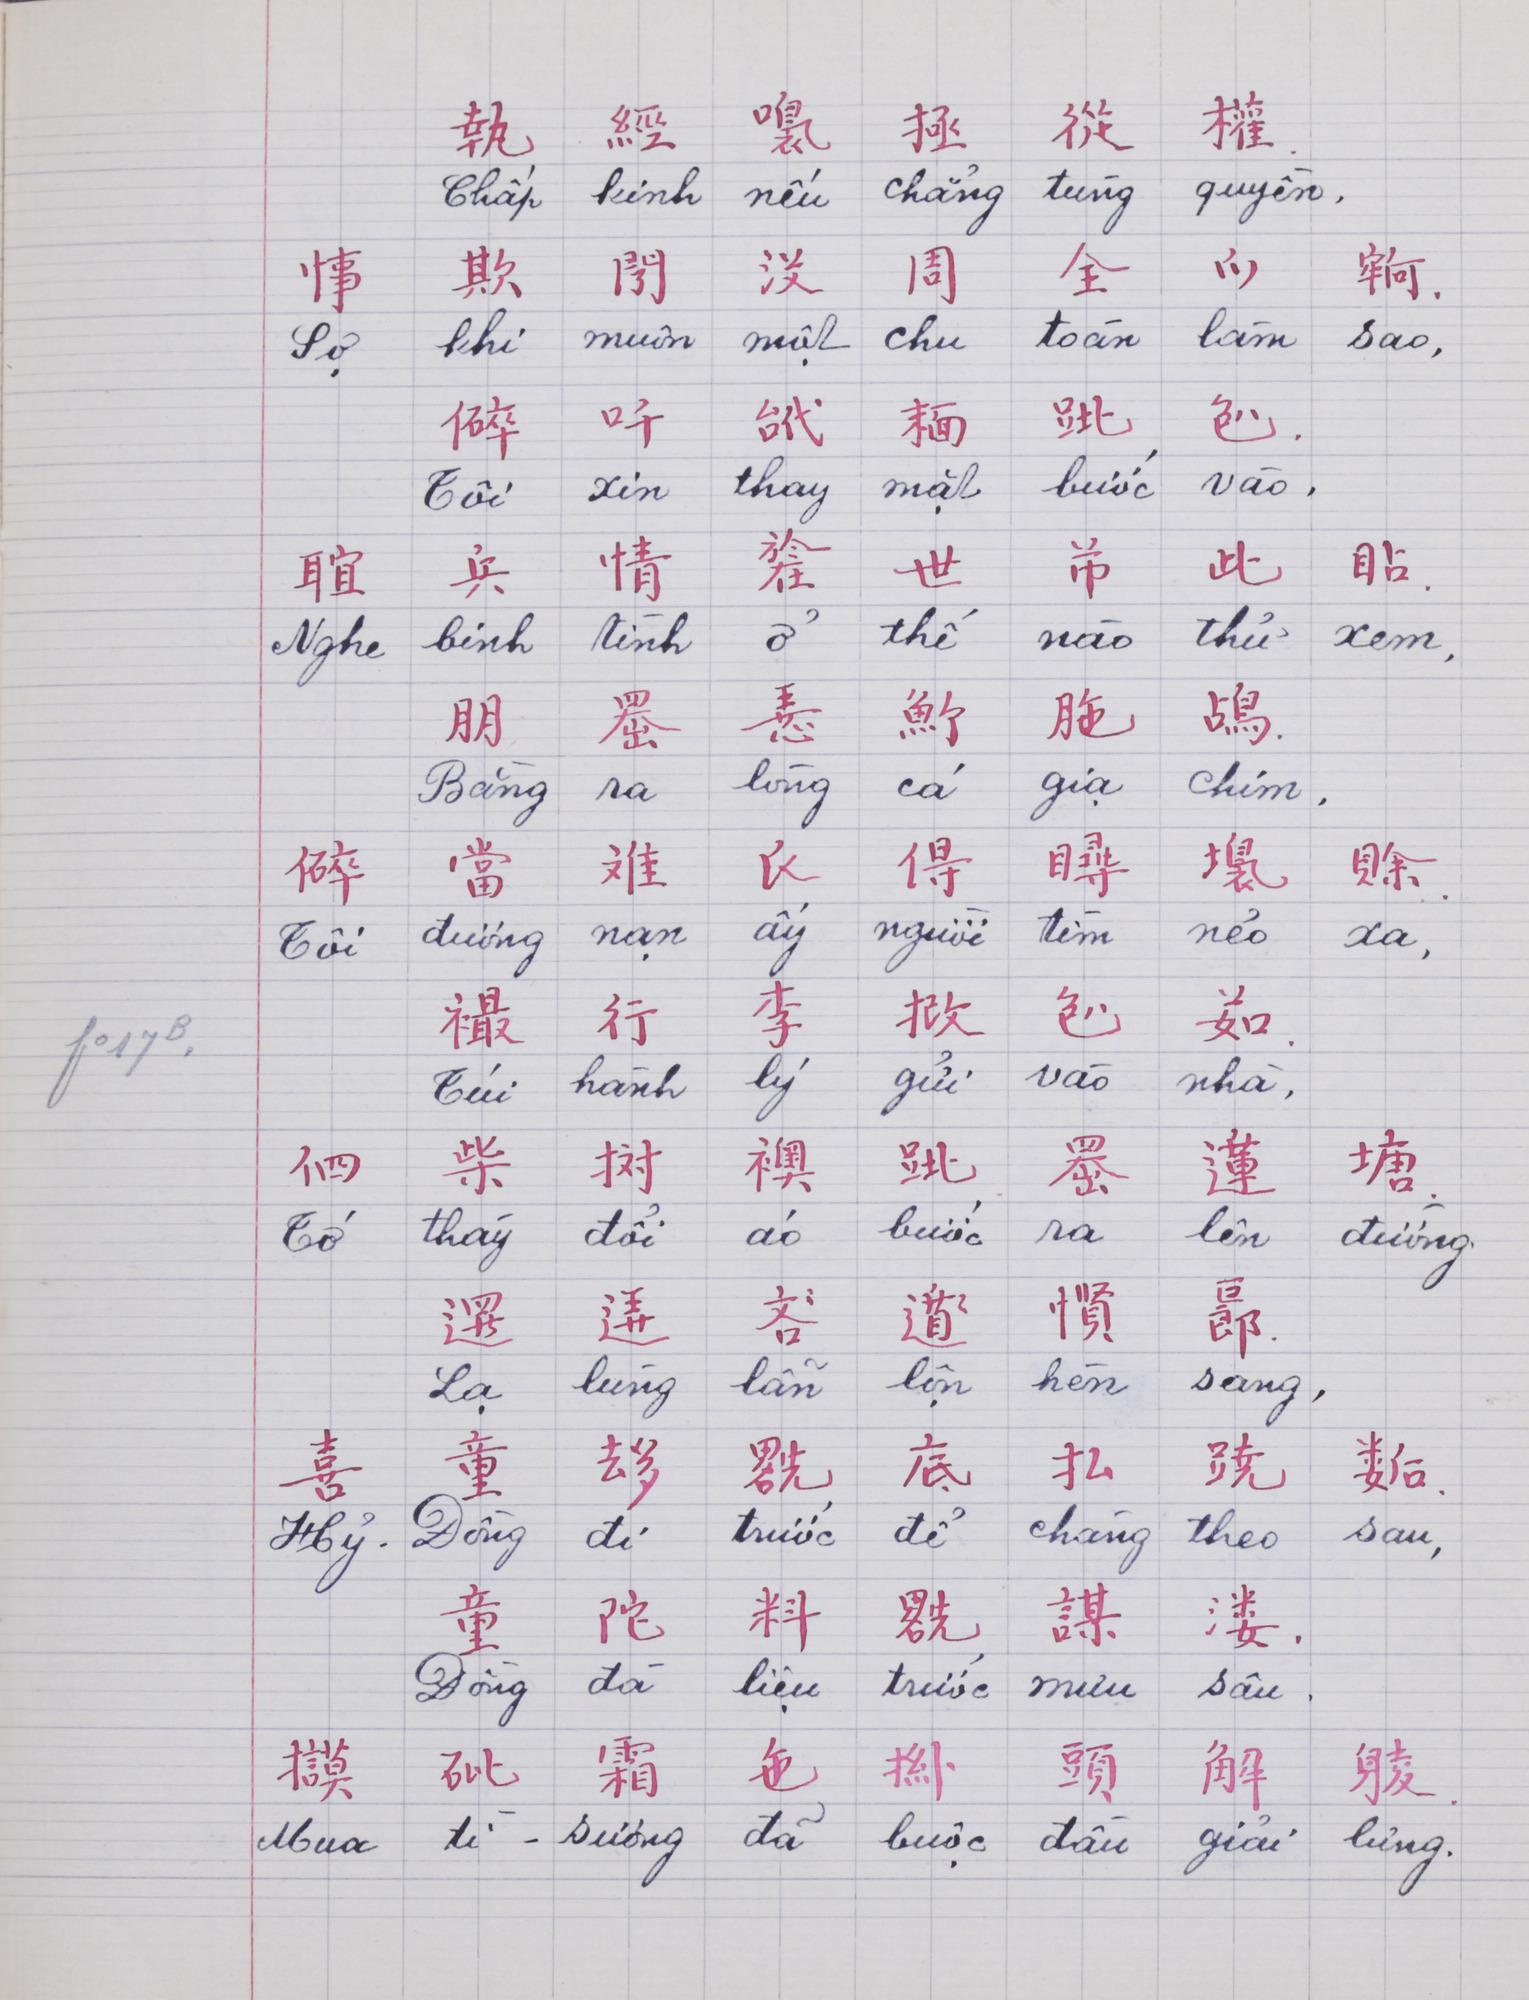 執 經 𠹾 極 從 權.
Chấp kinh nếu chẳng tùng quyền,
㑹 欺 𨷈 沒 周 全 𪜀 𫳵.
Sợ khi muôn một chu toàn làm sao,
碎 吀 𠊝 𩈘 𨀈 𠓨.
Tôi xin thay mặt bước vào,
𦖑 兵 情 於 世 𱜢 此 䀡.
Nghe binh tình ở thế nào thử xem,
朋 𠚢 𢚸 𩵜 胣 𪀄.
Bằng ra lòng cá giạ chim,
碎 當 難 𧘇 㝵 尋 𡓃 賖.
Tôi đương nạn ấy người tìm nẻo xa,
襊 行 李 𢭮 𠓨 茹.
Túi hành lý gửi vào nhà,
伵 柴 𢬭 襖 𨀈 𠚢 𨖲 塘.
Tớ thày đổi áo bước ra lên đường.
𨔍 𨓡 吝 遁 慣 郎.
Lạ lùng lẫn lộn hèn sang,
喜 童 𠫾 𠓀 底 払 蹺 𢖖.
Hỷ-Đồng đi trước để chàng theo sau,
童 陀 料 𠓀 謀 溇.
Đồng đà liệu trước mưu sâu.
𢱖 砒 霜 㐌 𢷏 頭 解 𨉞.
Mua tì-sương đã buộc đầu giải lưng.
fº 17B.